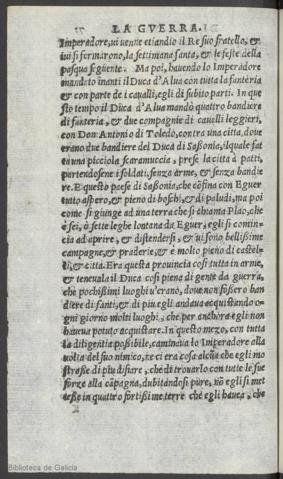 LA GVERRA.
Imperadore, ui uenne etiandio il Re suo fratello, &
iui si fermarono, la settimana santa, & le feste della
pasqua seguente. Ma poi, hauendo lo Imperadore
mandato inanti il Duca d'Alua con tutta la fanteria
& con parte de i caualli, egli di subito parti. In que
sto tempo il Duca d'Alua mandò quattro bandiere
di fanteria, & due compagnie di caualli leggieri,
con Don Antonio di Toledo, contra una città, doue
erano due bandiere del Duca di Sassonia, ilquale fat
ta una picciola scaramuccia, prese la città à patti,
partendosene i soldati, senza arme, & senza bandie
re. E questo paese di Sassonia, che cõfina con Eguer
tutto aspero, & pieno di boschi, & di paludi, ma poi
come si giunge ad una terra che si chiama Plao, che
è sei, ò sette leghe lontana da Eguer, egli si comin-
cia ad aprire, & distendersi, & ui sono bellissime
campagne, & praderie, & è molto pieno di castel-
li, & città. Era questa prouincia cosi tutta in arme,
& teneuala il Duca cosi piena di gente da guerra,
che pochissimi luoghi u'erano, doue non fossero ban
diere di fanti, & di piu egli andaua acquistando o-
gni giorno molti luoghi, che per anchora egli non
haueua potuto acquistare. In questo mezo, con tutta
la diligentia possibile, caminaua lo Imperadore alla
uolta del suo nimico, ne ci era cosa alcũa che egli mo
strasse di piu disiare, che di trouarlo con tutte le sue
forze alla cãpagna, dubitandosi pure, nõ egli si met
tesse in quattro fortissime terre che egli haueua, che
Biblioteca de Galicia